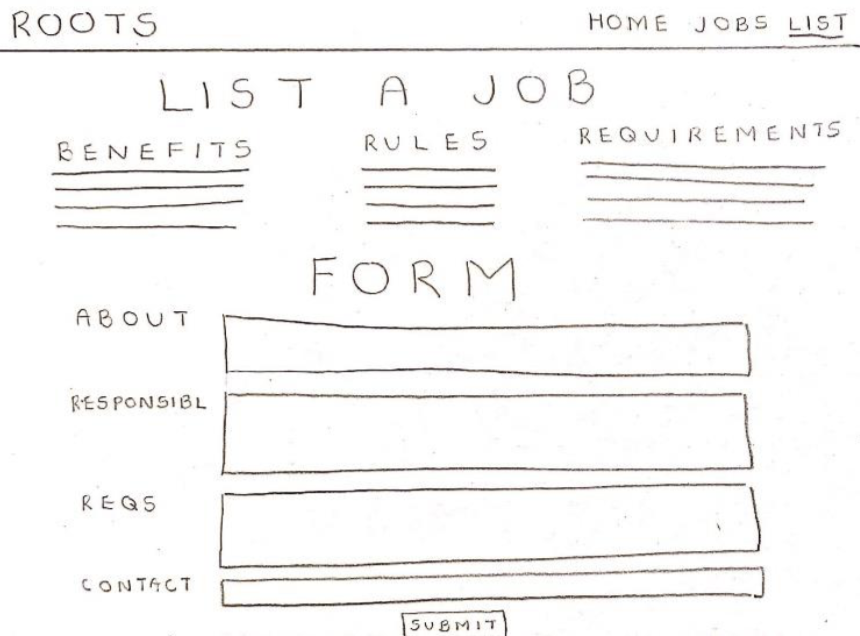 ROOTS HOME JOBS LIST
LIST A JOB
BENEFITS RULES REQUIREMENTS
FORM
ABOUT
RESPONSIBL
REQS
CONTACT
SUBMIT